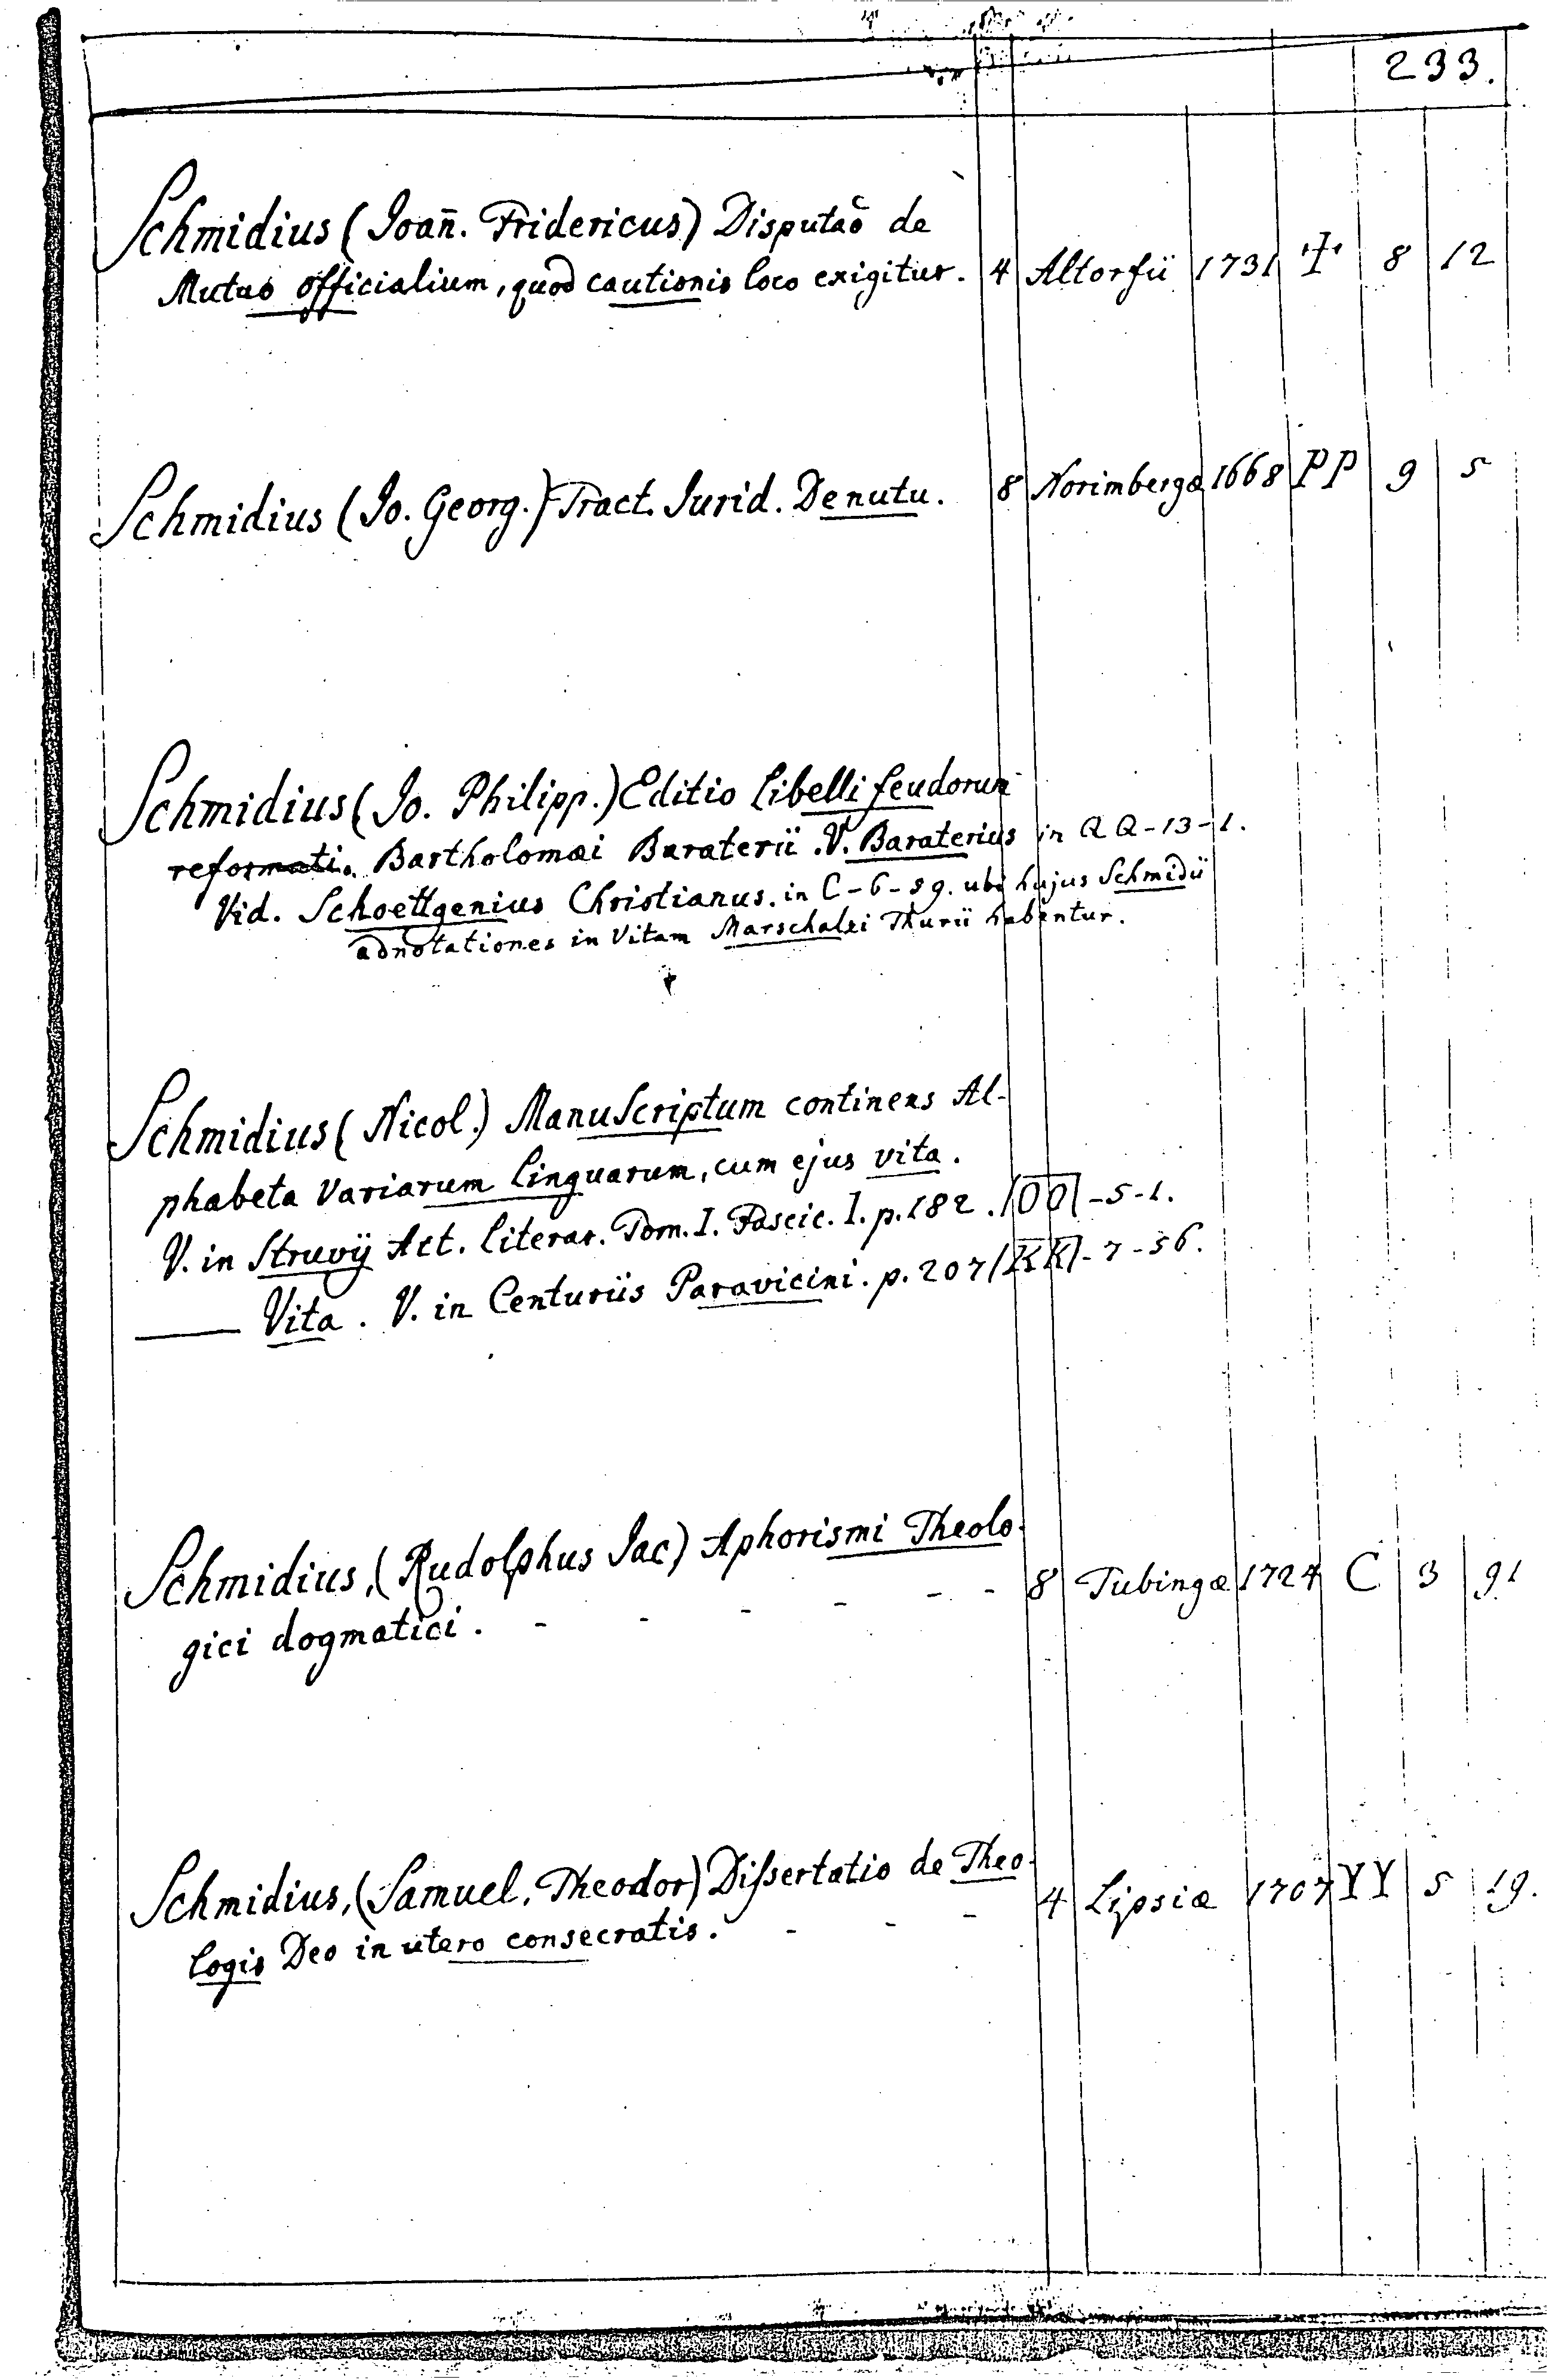 233.
Schmidius (Joan̄. Fridericus) Disputaõ de
Mutuo officialium, quod cautionis loco exigitur. 4 Altorfii 1731 Ŧ 8 12
Schmidius (Jo. Georg.) Tract. Jurid. De nutu. 8 Norimbergæ 1668 PP 9 5
Schmidius (Jo. Philipp.) Editio libelli feudorum
reformati. Bartholomæi Baraterii. V. Baraterius in QQ-13-1.
Vid. Schoettgenius Christianus. in C-6-59. ubi hujus Schmidii
adnotationes in Vitam Marschalei Thurii habentur.
Schmidius (Nicol.) Manuscriptum continens Al-
phabeta variarum linguarum, cum ejus vita.
V. in Struvij Act. literar. Tom. I. Fascic. I. p. 182. OO-5-1.
—— Vita. V. in Centuriis Paravicini. p. 207 KK-7-56.
Schmidius, (Rudolphus Jac) Aphorismi Theolo- 8 Tubingæ 1724 C 3 91
gici dogmatici. - - - - - -
Schmidius, (Samuel, Theodor) Dissertatio de Theo- 4 Lipsiæ 1707 YY 5 19.
logis Deo in utero consecratis. - - -